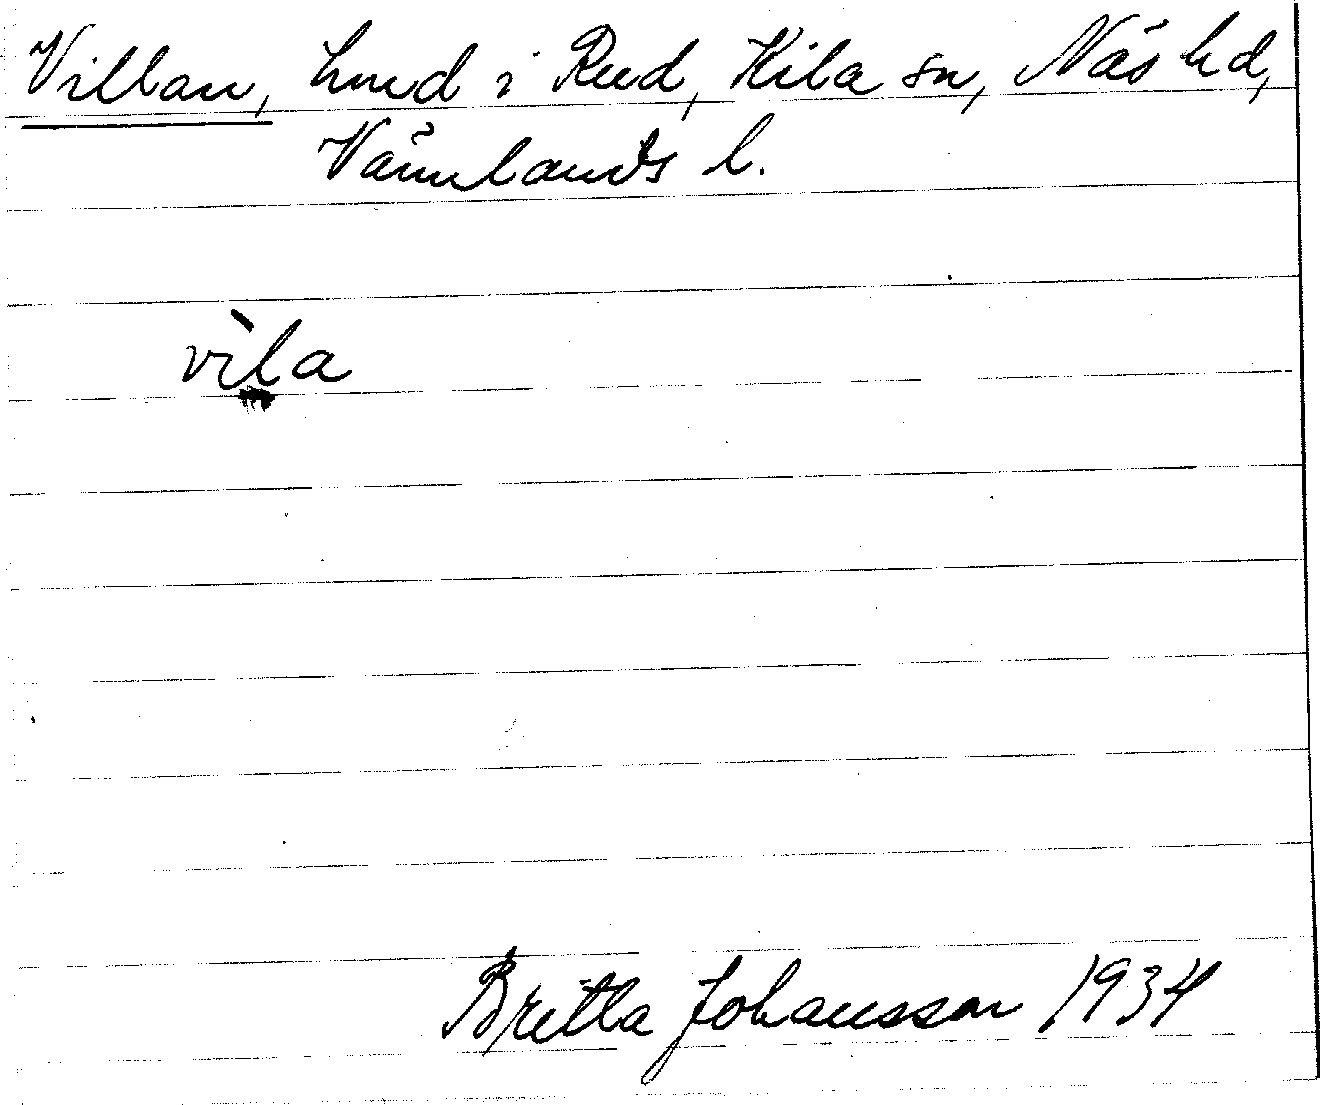 Villan, hmd i Rud, Kila sn, Näs hd,
Värmlands l.
vìla
Britta Johansson 1934